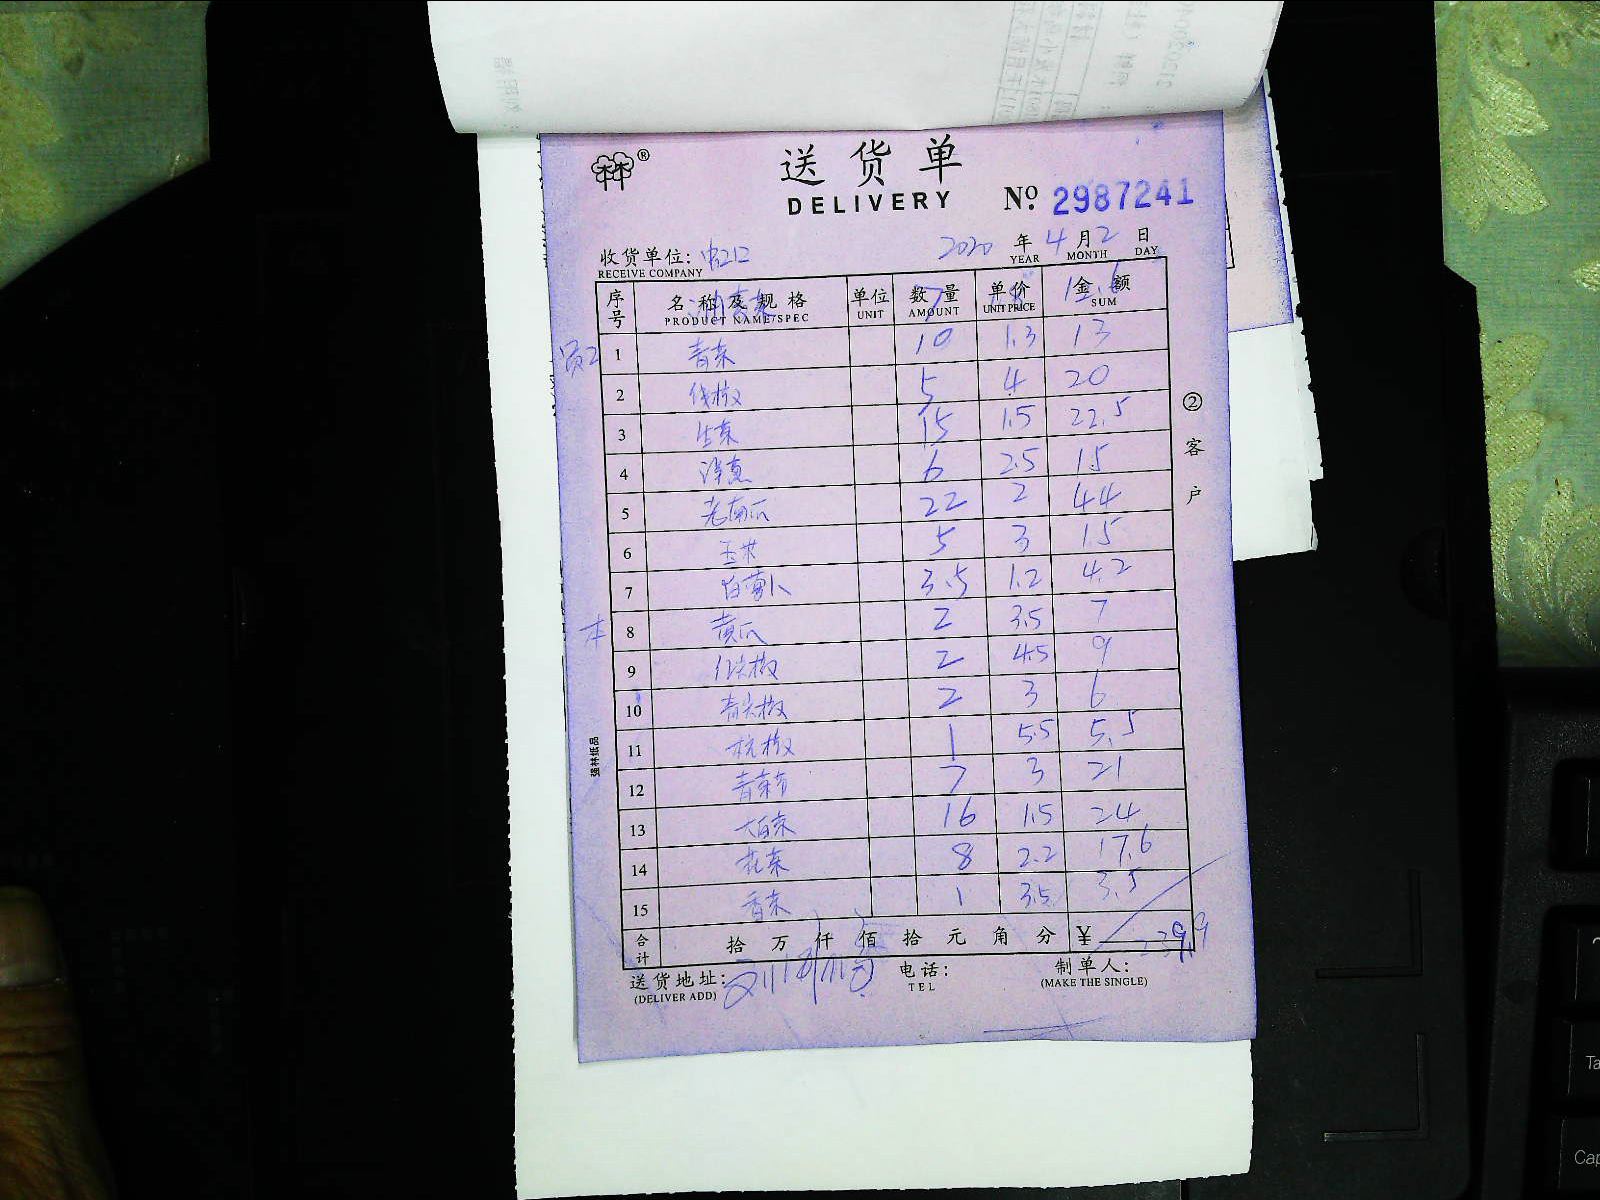 送货单
DELIVERY
No. 2987241
收货单位:
RECEIVE COMPANY
2020 年 4 月 2 日
YEAR MONTH DAY
序号 名称及规格 单位 数量 单价 金额
PRODUCT NAME/SPEC UNIT AMOUNT UNIT PRICE SUM
1 青菜 10 1.3 13
2 线椒 5 4 20
3 生菜 15 1.5 22.5
4 洋葱 6 2.5 15
5 老南瓜 22 2 44
6 玉米 5 3 15
7 白萝卜 3.5 1.2 4.2
8 黄瓜 2 3.5 7
9 红尖椒 2 4.5 9
10 青尖椒 2 3 6
11 杭椒 1 5.5 5.5
12 青菜苔 7 3 21
13 大白菜 16 1.5 24
14 花菜 8 2.2 17.6
15 香菜 1 3.5 3.5
合计 拾 万 仟 佰 拾 元 角 分 ¥ 239.9
送货地址:
(DELIVER ADD)
电话:
TEL
制单人:
(MAKE THE SINGLE)
②客户
强林纸品